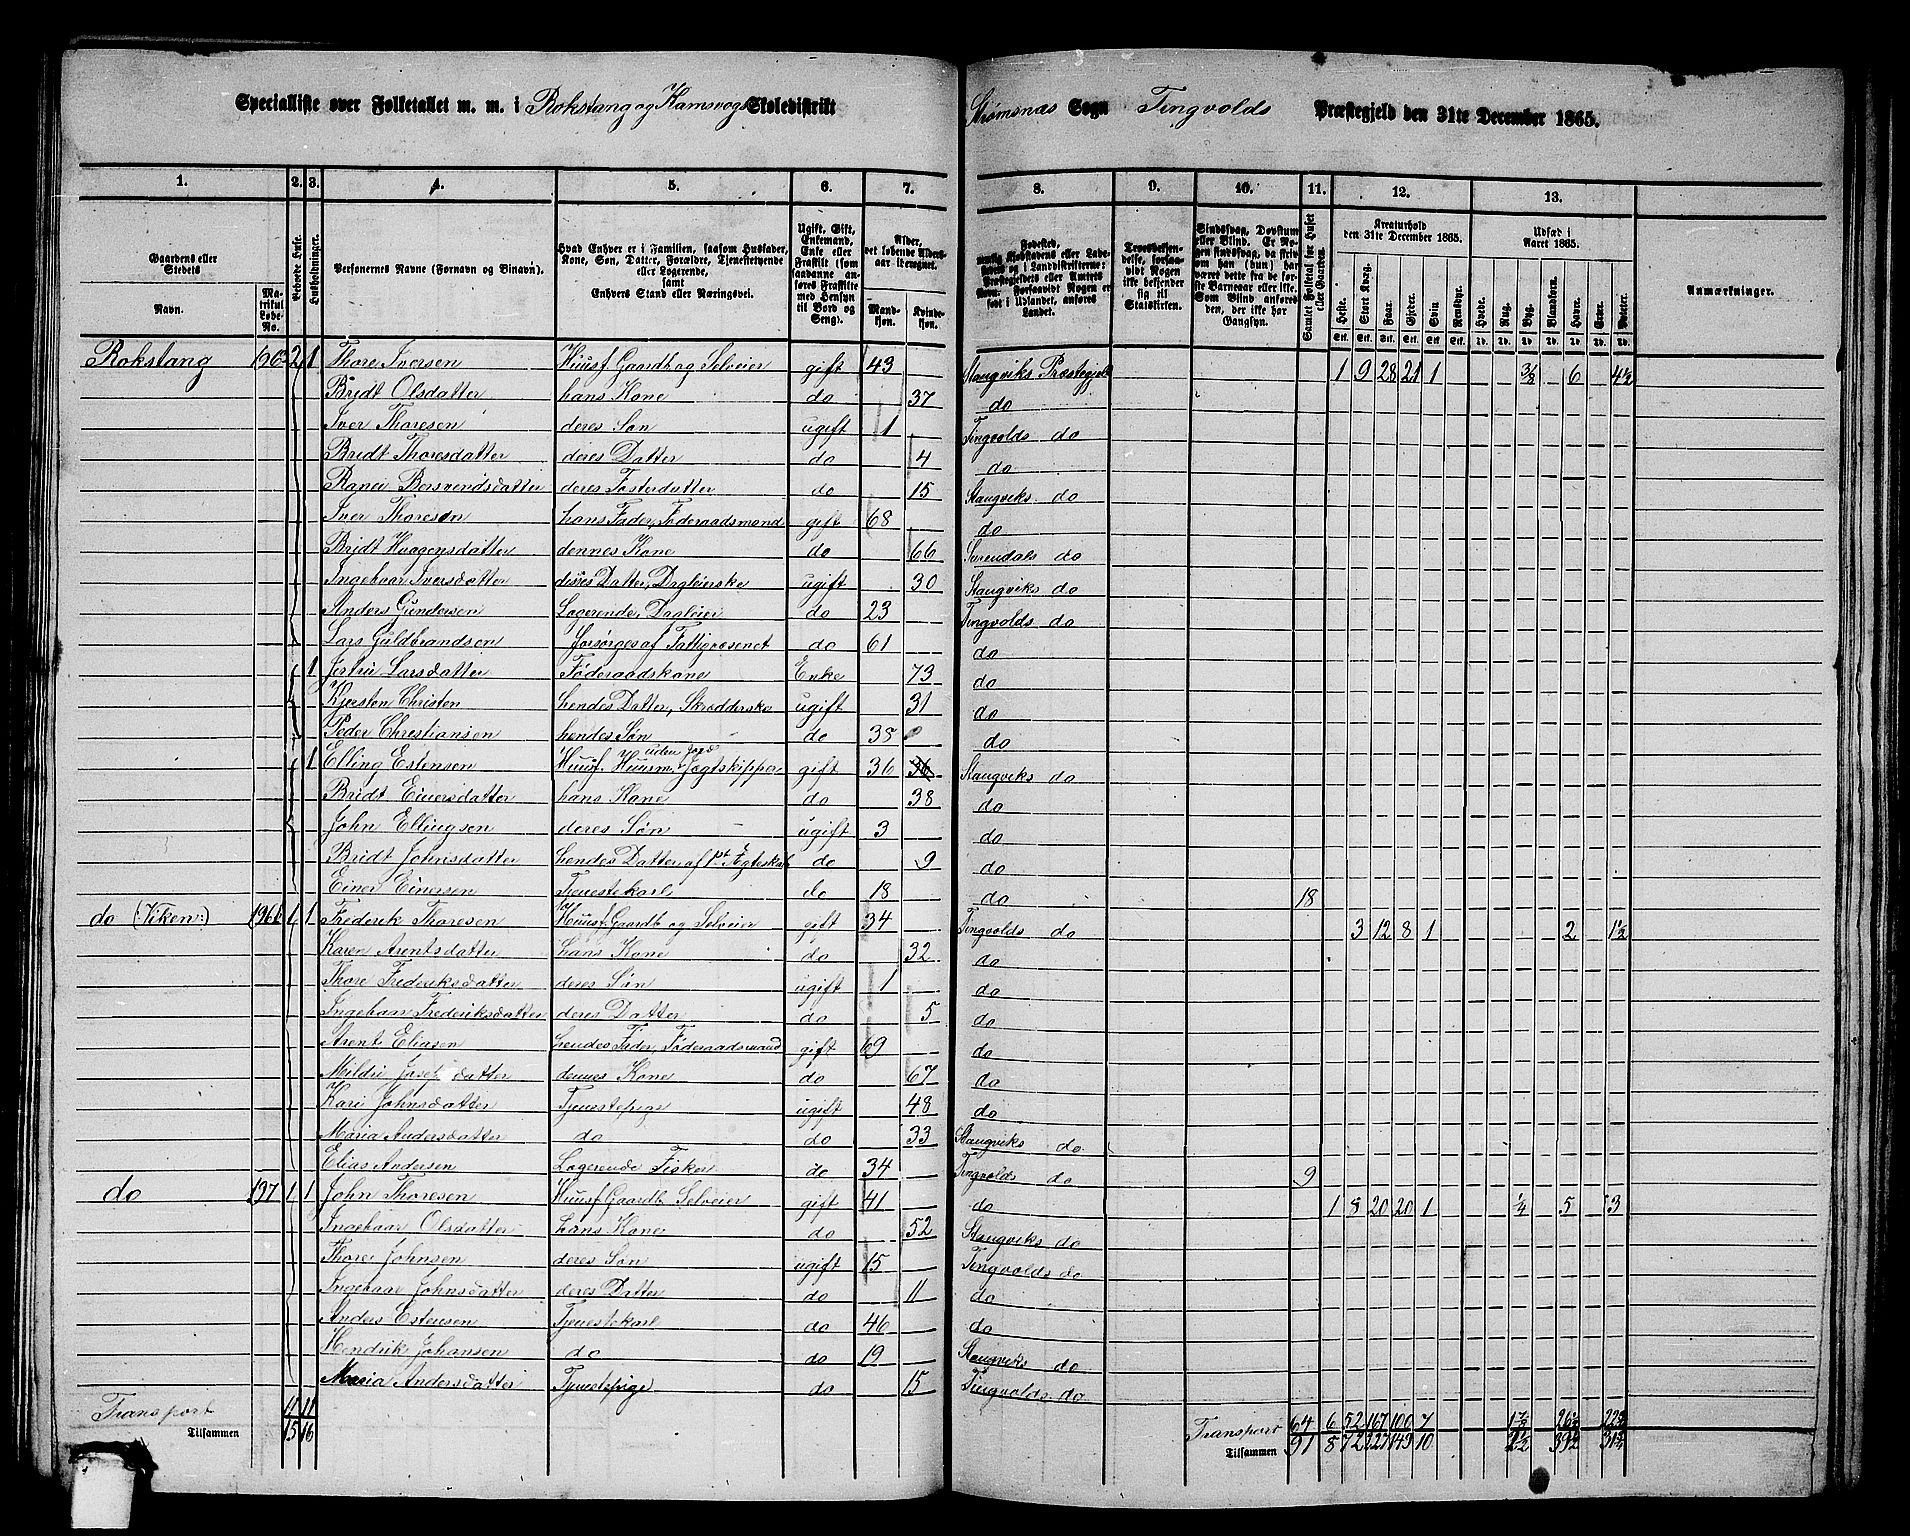 Specialliste over Folketallet m. m. i Rokstang og Hamsvogs Skoledistrikt Strømsnæs Sogn Tingvolds Præstegjeld den 31te December 1865.
1. 2. 3. 4. 5. 6. 7. 8. 9. 10. 11. 12. 13.
Gaardens eller Stedets Navn. Matrikul Løbe-No. Beboede Huse. Husholdninger. Personernes Navne (Fornavn og Binavn). Hvad Enhver er i Familien, saasom Husfader, Kone, Søn, Datter, Forældre, Tjenestetyende eller Logerende, samt Enhvers Stand eller Næringsvei. Ugift, Gift, Enkemand, Enke eller Fraskilt (som saadanne anføres Fraskilte med Hensyn til Bord og Seng). Alder, det løbende Aldersaar iberegnet. Mandkjøn. Kvindekjøn.
Samlet Folketal for Huset eller Gaarden. Kreaturhold den 31te December 1865. Heste. Stort Kvæg. Faar. Gjeter. Svin. Rensdyr. Udsæd i Aaret 1865. Hvede. Rug. Byg. Blandkorn. Havre. Erter. Poteter. Anmærkninger.
Rokstang 196 2 1 Thore Iversen Huusf. Gaardb og Selveier gift 43 Stangviks Præstegjeld 1 9 28 21 1 3/8 6 4½
Bridt Olsdatter hans Kone do 37 do
Iver Thoresen deres Søn ugift 1 Tingvolds do
Bridt Thoresdatter deres Datter do 4 do
Ranei Bersvendsdatter deres Fosterdatter do 15 Stangviks do
Iver Thoresøn hans Fader, Føderaadsmand gift 68 do
Bridt Haagensdatter dennes Kone do 66 Surendals do
Ingebaar Iversdatter deres Datter, Dagleierske ugift 30 Stangviks do
Anders Gundersen Logerende, Dagleier do 23 Tingvolds do
Lars Guldbrandsen Forsørges af Fattigvæsenet do 61 do
1 Jertru Larsdatter Føderaadskone Enke 73 do
Kjersten Christen hendes Datter, Skrædderske ugift 31 do
Peder Christiansen hendes Søn do 35 do
1 Elling Estensen Huusf. Huusm. uden Jord Jagtskipper gift 36 36 Stangviks do
Bridt Einersdatter hans Kone do 38 do
John Ellingsen deres Søn ugift 3 do
Bridt Johnsdatter hendes Datter af 1ste Ægteskab do 9 do
Einer Einersen Tjenestekarl do 18 do 18
do (:Viken:) 196b 1 1 Frederik Thoresen Huusf. Gaardb og Selveier gift 34 Tingvolds do 3 12 8 1 2 1½
Karen Arentsdatter hans Kone do 32 do
Thore Frederiksdatter deres Søn ugift 1 do
Ingebaar Frederiksdatter deres Datter do 5 do
Arent Eliasen hendes Fader, Føderaadsmand gift 69 do
Mildri Josefsdatter dennes Kone do 67 do
Kari Johnsdatter Tjenestepige ugift 48 do
Maria Andersdatter do do 33 Stangviks do
Elias Andersen Logerende Fisker do 34 Tingvolds do 9
do 197 1 1 John Thoresen Huusf. Gaardb. Selveier gift 41 do 1 8 20 20 1 ¼ 5 3
Ingebaar Olsdatter hans Kone do 52 Stangviks do
Thore Johnsen deres Søn ugift 15 Tingvolds do
Ingebaar Johnsdatter deres Datter do 11 do
Anders Estensen Tjenestekarl do 46 do
Hendrik Johansen do do 19 Stangviks do
Maria Andersdatter Tjenestepige do 15 Tingvolds do
Transport 11 11 Transport 64 6 52 167 100 7
Tilsammen 15 16 Tilsammen 91 8 72 227 149 10 39½